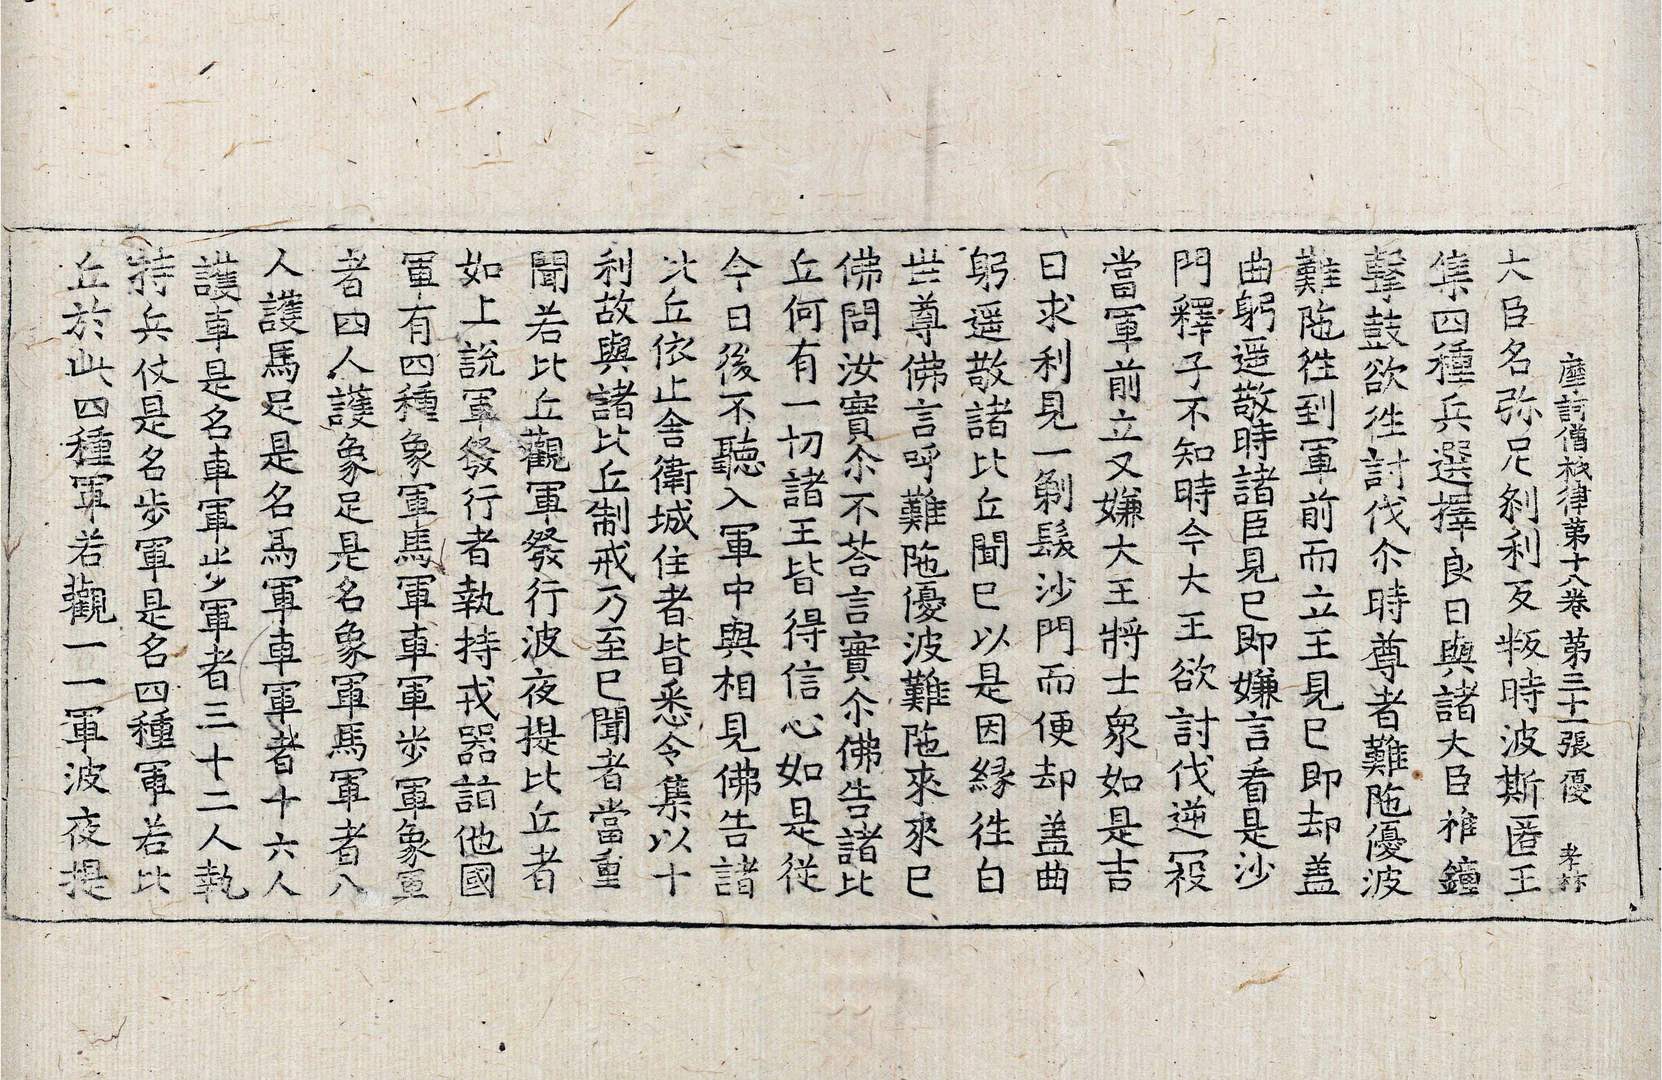 摩訶僧祇律第十八卷　第三十一張　優　孝林
大臣名弥尼刹利反叛時波斯匿王
集四種兵選擇良日與諸大臣椎鐘
擊鼓欲徃討伐尒時尊者難陁優波
難陁徃到軍前而立王見巳即却盖
曲躬遥敬時諸臣見巳即嫌言看是沙
門釋子不知時今大王欲討伐逆冦
當軍前立又嫌大王將士衆如是吉
日求利見一剃髮沙門而便却盖曲
躬遥敬諸比丘聞巳以是因縁徃白
世尊佛言呼難陁優波難陁來來巳
佛問汝實尒不荅言實尒佛告諸比
丘何有一切諸王皆得信心如是從
今日後不聽入軍中與相見佛告諸
比丘依止舎衛城住者皆悉令集以十
利故與諸比丘制戒乃至巳聞者當重
聞若比丘觀軍發行波夜提比丘者
如上說軍發行者執持戎器詣他國
軍有四種象軍馬軍車軍步軍象軍
者四人護象足是名象軍馬軍者八
人護馬足是名馬軍車軍者十六人
護車是名車軍步軍者三十二人執
持兵仗是名步軍是名四種軍若比
丘於此四種軍若觀一一軍波夜提